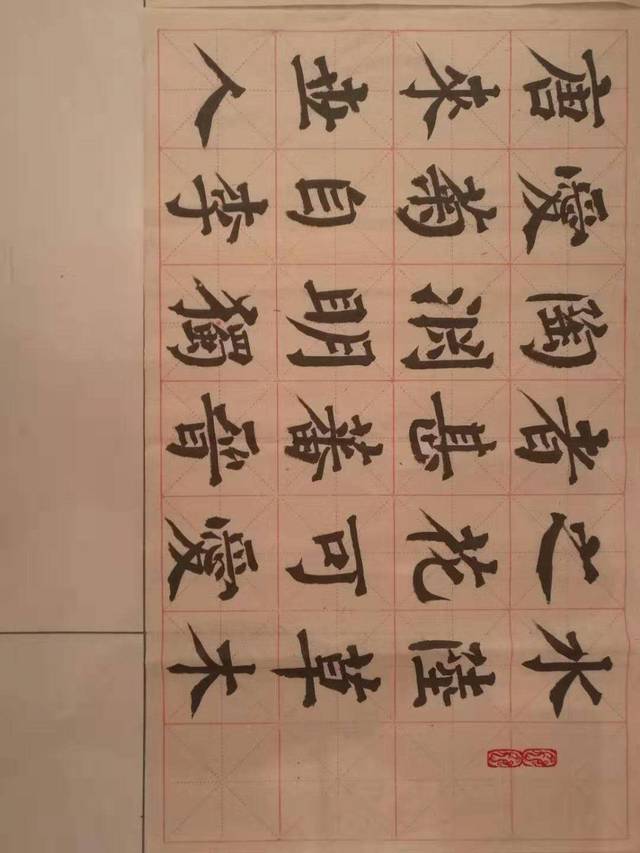 水陸草木
之花可愛
者甚蕃晉
陶淵明獨
愛菊自李
唐来世人